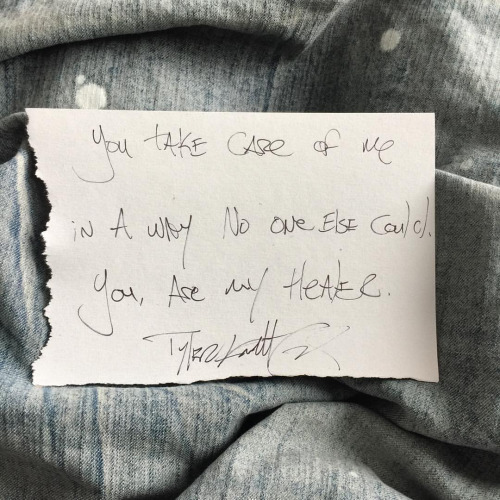 You TAKE CARE of me
iN A WAY No oNe ELSE Could.
You, ARE my HEALER.
TYLER KNOTT